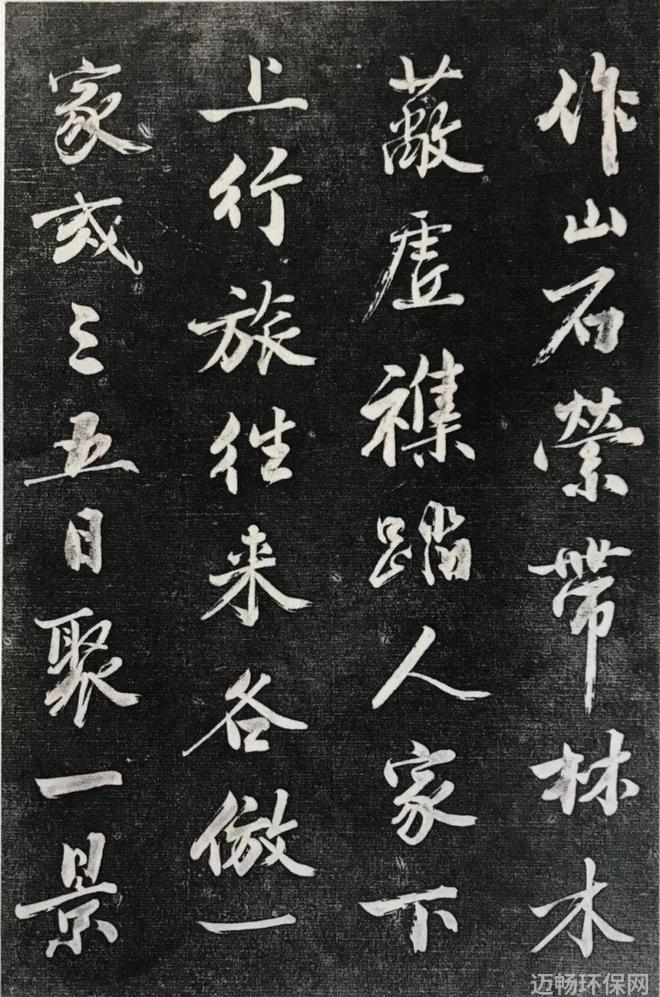 作山石縈帶林木
蔽虚襍踏人家下
上行旅往来各倣一
家或三五日聚一景
迈畅环保网